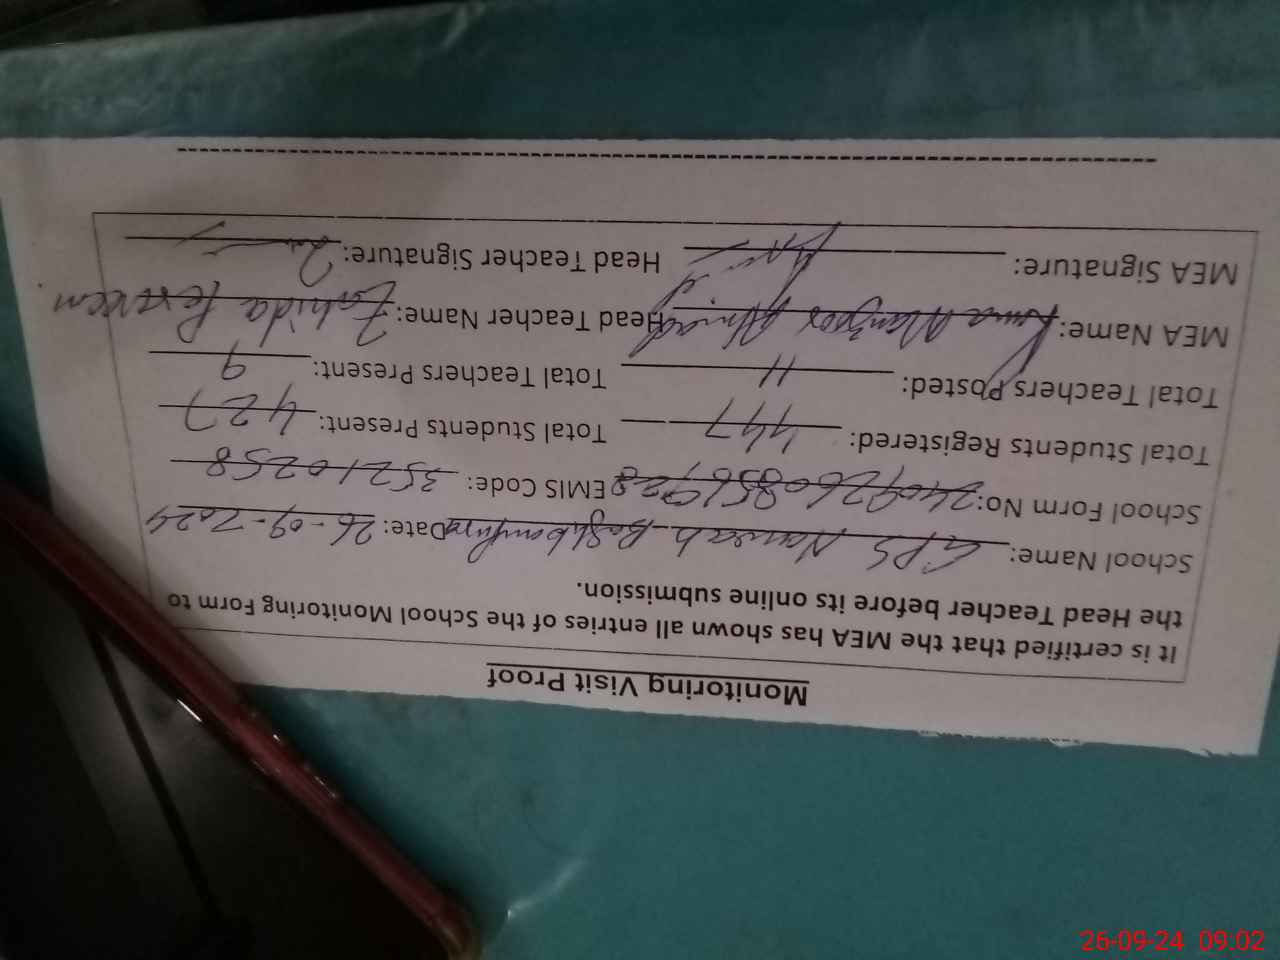 Monitoring Visit Proof
It is certified that the MEA has shown all entries of the School Monitoring Form to
the Head Teacher before its online submission.
School Name: GPS Nawab Date: 26-09-2024
School Form No: EMIS Code: 35210258
Total Students Registered: 447 Total Students Present: 427
Total Teachers Posted: 11 Total Teachers Present: 9
MEA Name: Rana Manzoor Ahmad Head Teacher Name: Zahida Perveen
MEA Signature: Head Teacher Signature:
26-09-24 09:02